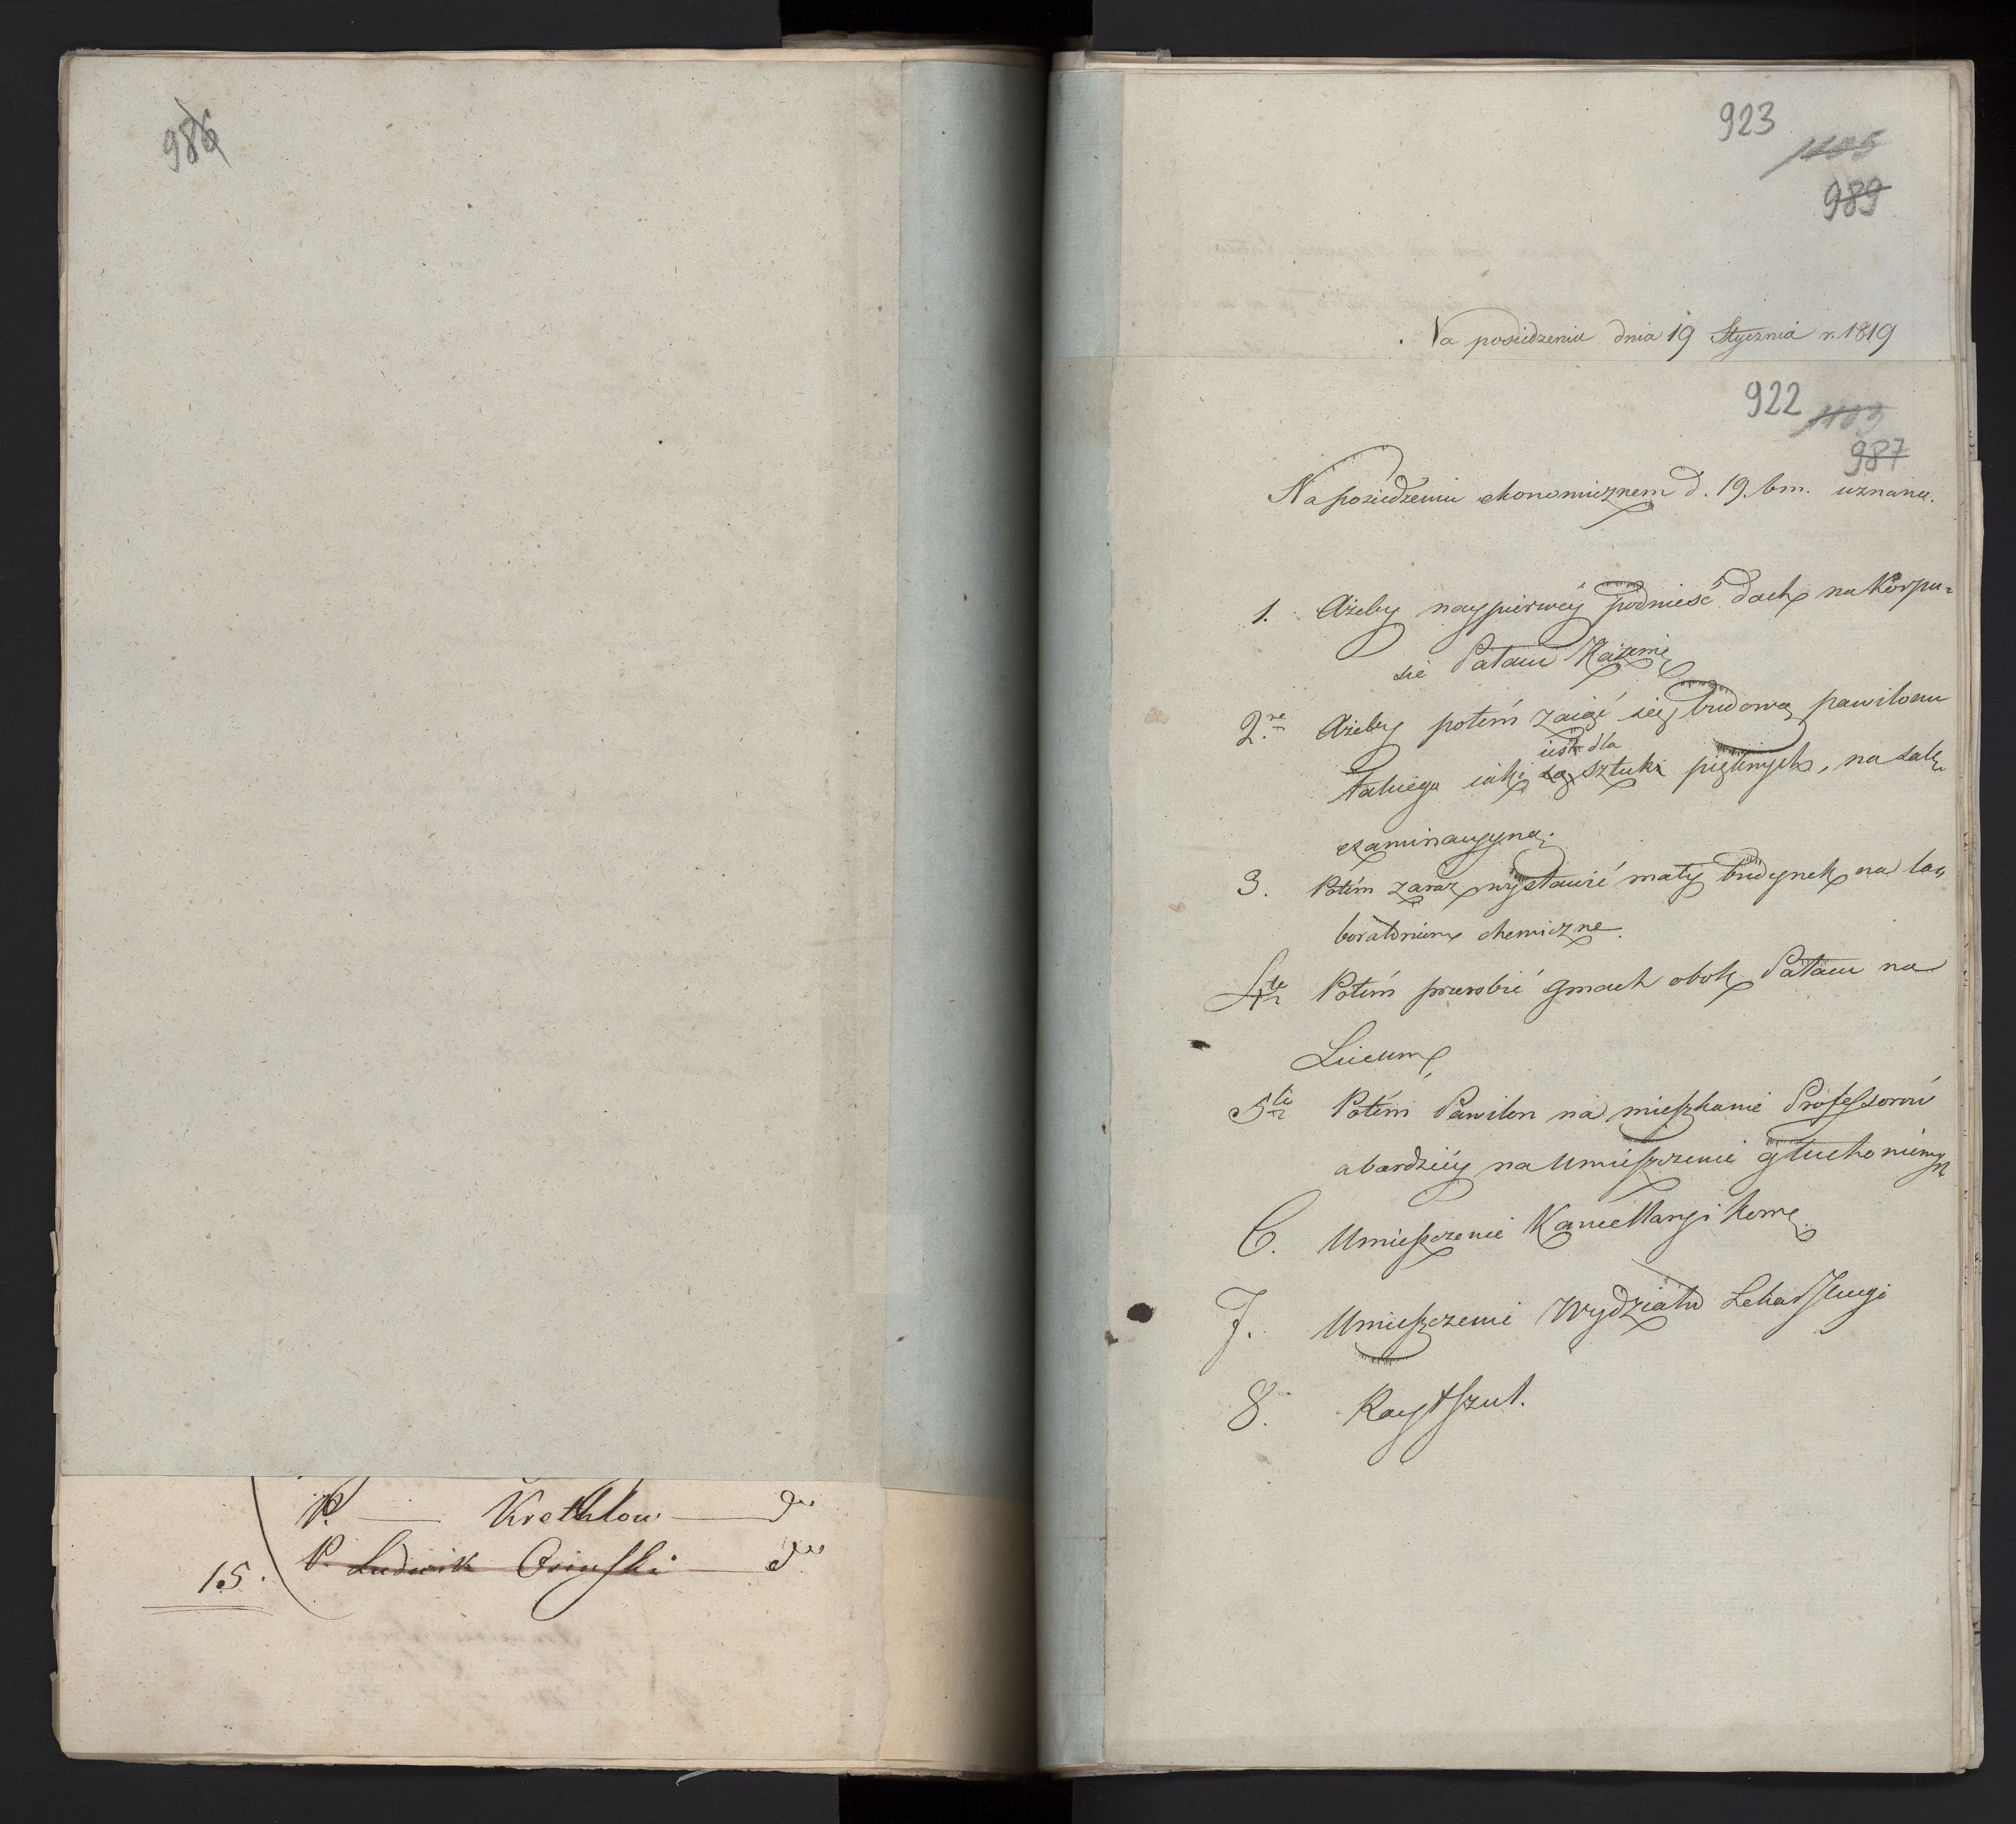 986
P. — Krethlow — dto
15. P. Ludwik Osiński — dto
923
1105
989
Na posiedzeniu dnia 19 Stycznia r. 1819
922
1103
987
Na posiedzeniu ekonomicznem d. 19. bm. uznano.
1. Ażeby naypierwey podnieść dach na Korpu=
sie Pałacu Kazimie
2re Ażeby potém zaiąć się budową pawilonu
iest dla
takiego iaki są sztuki pięknych, na salę
examinacyyną.
3. Potém zaraz wystawić mały budynek na la„
boratorium chemiczne.
4te Potém przerobić gmach obok Pałacu na
Liceum
5te Potém Pawilon na mieszkanie Professorów
a bardziéy na umieszczenie głucho niemych
6. Umieszczenie Kancellaryi Komę
7. Umieszczenie Wydziału Lekar
8.